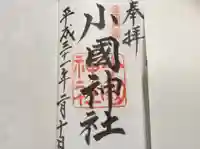 奉拝
小國神社
平成三十一年二月十日